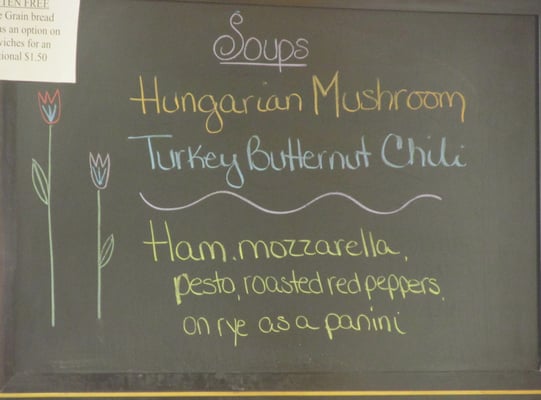 TEN FREE
Grain bread
as an option on
wiches for an
tional $1.50
Soups
Hungarian Mushroom
Turkey Butternut Chili
Ham, mozzarella,
pesto, roasted red peppers,
on rye as a panini